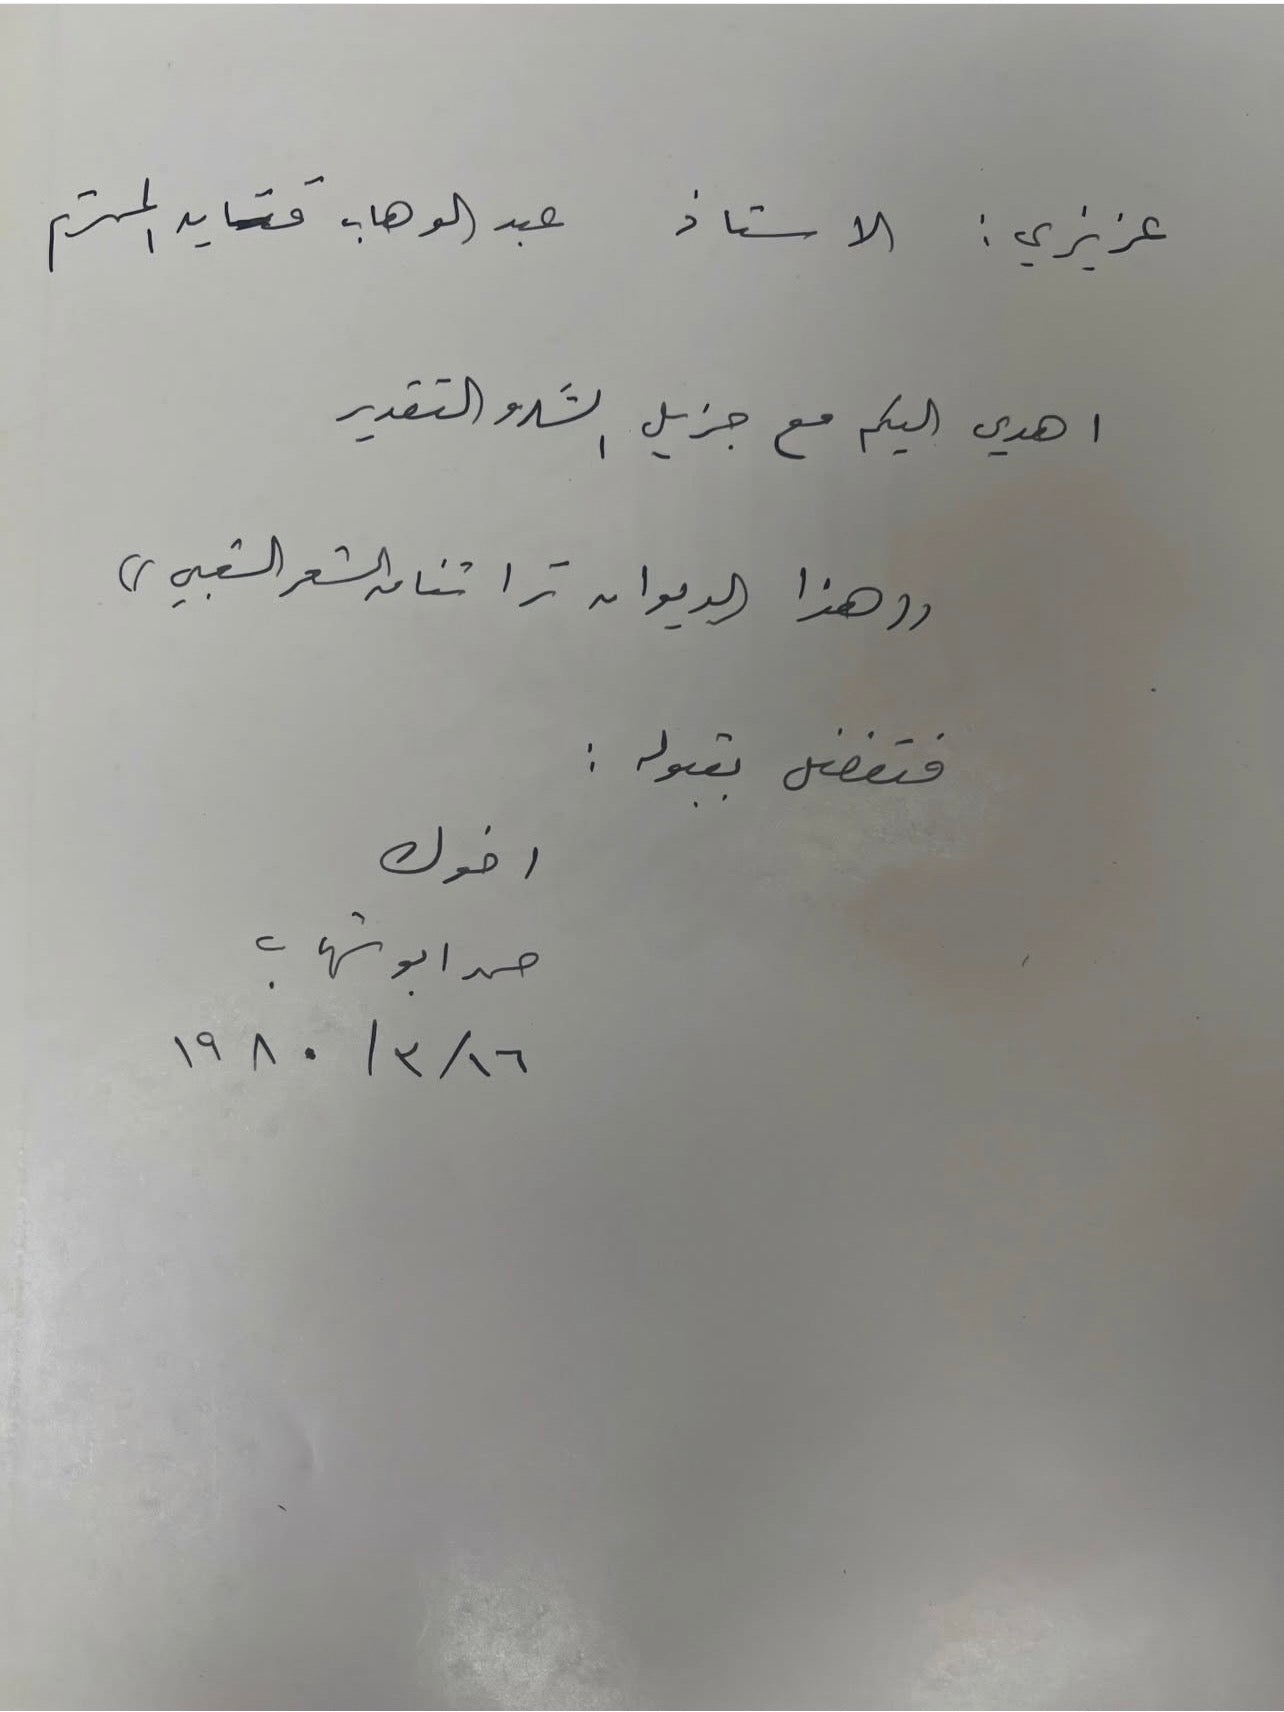 عزيزي : الاستاذ عبد الوهاب قتايه المحترم
اهدي اليكم مع جزيل الشكر والتقدير
((هذا الديوان تراثنا من الشعر الشعبي))
فتفضل بقبوله :
اخوك
حمد ابو شهاب
١٩٨٠/٣/١٦